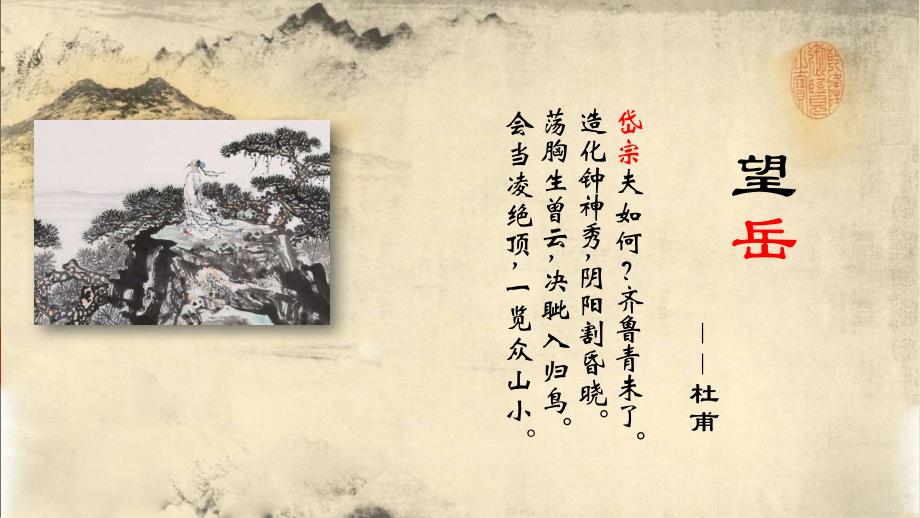 望岳
——杜甫
岱宗夫如何？齐鲁青未了。
造化钟神秀，阴阳割昏晓。
荡胸生曾云，决眦入归鸟。
会当凌绝顶，一览众山小。